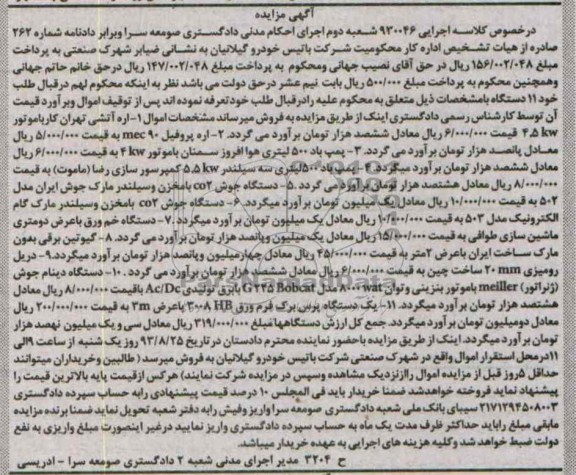 آگهی مزایده
درخصوص کلاسه اجرایی ۹۳۰۰۴۶ شعبه دوم اجرای احکام مدنی دادگستری صومعه سرا وبرابر دادنامه شماره ۲۶۲
صادره از هیات تشخیص اداره کار محکومیت شرکت باتیس خودرو گیلانیان به نشانی ضیابر شهرک صنعتی به پرداخت
مبلغ ۱۵۶/۰۰۲/۰۴۸ ریال در حق آقای نصیب جهانی ومحکوم به پرداخت مبلغ ۱۴۷/۰۰۲/۰۴۸ ریال درحق خانم حاتم جهانی
وهمچنین محکوم به پرداخت مبلغ ۵۰۰/۰۰۰ ریال بابت نیم عشر درحق دولت می باشد نظر به اینکه محکوم لهم درقبال طلب
خود ۱۱ دستگاه بامشخصات ذیل متعلق به محکوم علیه رادرقبال طلب خودتعرفه نموده اند پس از توقیف اموال وبرآورد قیمت
آن توسط کارشناس رسمی دادگستری اینک از طریق مزایده به فروش میرساند مشخصات اموال ۱-اره آتشی تهران کارباموتور
۴.۵ kw قیمت ۶/۰۰۰/۰۰۰ ریال معادل ششصد هزار تومان برآورد می گردد. ۲-اره پروفیل mec ۹۰ به قیمت ۵/۰۰۰/۰۰۰ ریال
معادل پانصد هزار تومان برآورد می گردد. ۳- پمپ باد ۵۰۰ لیتری هوا افروز سمنان باموتور ۴ kw به قیمت ۶/۰۰۰/۰۰۰ ریال
معادل ششصد هزار تومان برآورد میگردد ۴- پمپ باد ۵۰۰لیتری سه سیلندر ۵.۵ kw کمپرسور سازی رضا (ماموت) به قیمت
۸/۰۰۰/۰۰۰ ریال معادل هشتصد هزار تومان برآورد می گردد .۵- دستگاه جوش co۲ بامخزن وسیلندر مارک جوش ایران مدل
۵۰۲ به قیمت ۱۰/۰۰۰/۰۰۰ ریال معادل یک میلیون تومان برآورد میگردد. ۶- دستگاه جوش co۲ بامخزن وسیلندر مارک گام
الکترونیک مدل ۵۰۳ به قیمت ۱۰/۰۰۰/۰۰۰ ریال معادل یک میلیون تومان برآورد میگردد .۷- دستگاه خم ورق باعرض دومتری
ماشین سازی طوافی به قیمت ۱۵/۰۰۰/۰۰۰ریال معادل یک میلیون وپانصد هزار تومان برآورد می گردد. ۸- گیوتین برقی بدون
مارک ساخت ایران باعرض ۲متر به قیمت ۴۵/۰۰۰/۰۰۰ ریال معادل چهارمیلیون وپانصد هزار تومان برآورد میگردد.۹- دریل
رومیزی ۲۰ mm ساخت چین به قیمت ۶/۰۰۰/۰۰۰ ریال معادل ششصد هزار تومان برآورد می گردد. ۱۰- دستگاه دینام جوش
(ژنراتور) meiller باموتور بنزینی وتوان ۸۰۰۰wat مدل G ۲۲۵ Bobcat بابرق تولیدی Ac/Dc باقیمت ۸/۰۰۰/۰۰۰ ریال معادل
هشتصد هزار تومان برآورد میگردد. ۱۱- یک دستگاه پرس برک فرم ورق ۳۰۰۸ HB باعرض ۳m به قیمت ۲۰۰/۰۰۰/۰۰۰ ریال
معادل دومیلیون تومان برآورد میگردد. جمع کل ارزش دستگاهها مبلغ ۳۱۹/۰۰۰/۰۰۰ ریال معادل سی و یک میلیون نهصد هزار
تومان برآورد میگردد. اینک از طریق مزایده باحضور نماینده محترم دادستان در تاریخ ۹۳/۸/۲۵ روز یک شنبه از ساعت ۹الی
۱۱درمحل استقرار اموال واقع در شهرک صنعتی شرکت باتیس خودرو گیلانیان به فروش میرسد (طالبین وخریداران میتوانند
حداقل ۵روز قبل از مزایده اموال راازنزدیک مشاهده وسپس در مزایده شرکت نمایند) هرکس ازقیمت پایه بالاترین قیمت را
پیشنهاد نماید فروخته خواهدشد ضمنا خریدار باید فی المجلس ۱۰ درصد قیمت پیشنهادی رابه حساب سپرده دادگستری
۲۱۷۱۲۹۴۵۰۸۰۰۳ سیبای بانک ملی شعبه دادگستری صومعه سرا واریز وفیش رابه دفتر شعبه تحویل نماید ضمنا برنده مزایده
مابقی مبلغ راباید حداکثر ظرف مدت یک ماه به حساب سپرده دادگستری واریز نمایید درغیر اینصورت مبلغ واریزی به نفع
دولت ضبط خواهد شد وکلیه هزینه های اجرایی به عهده خریدار میباشد.
ح ۳۲۰۴ مدیر اجرای مدنی شعبه ۲ دادگستری صومعه سرا - ادریسی